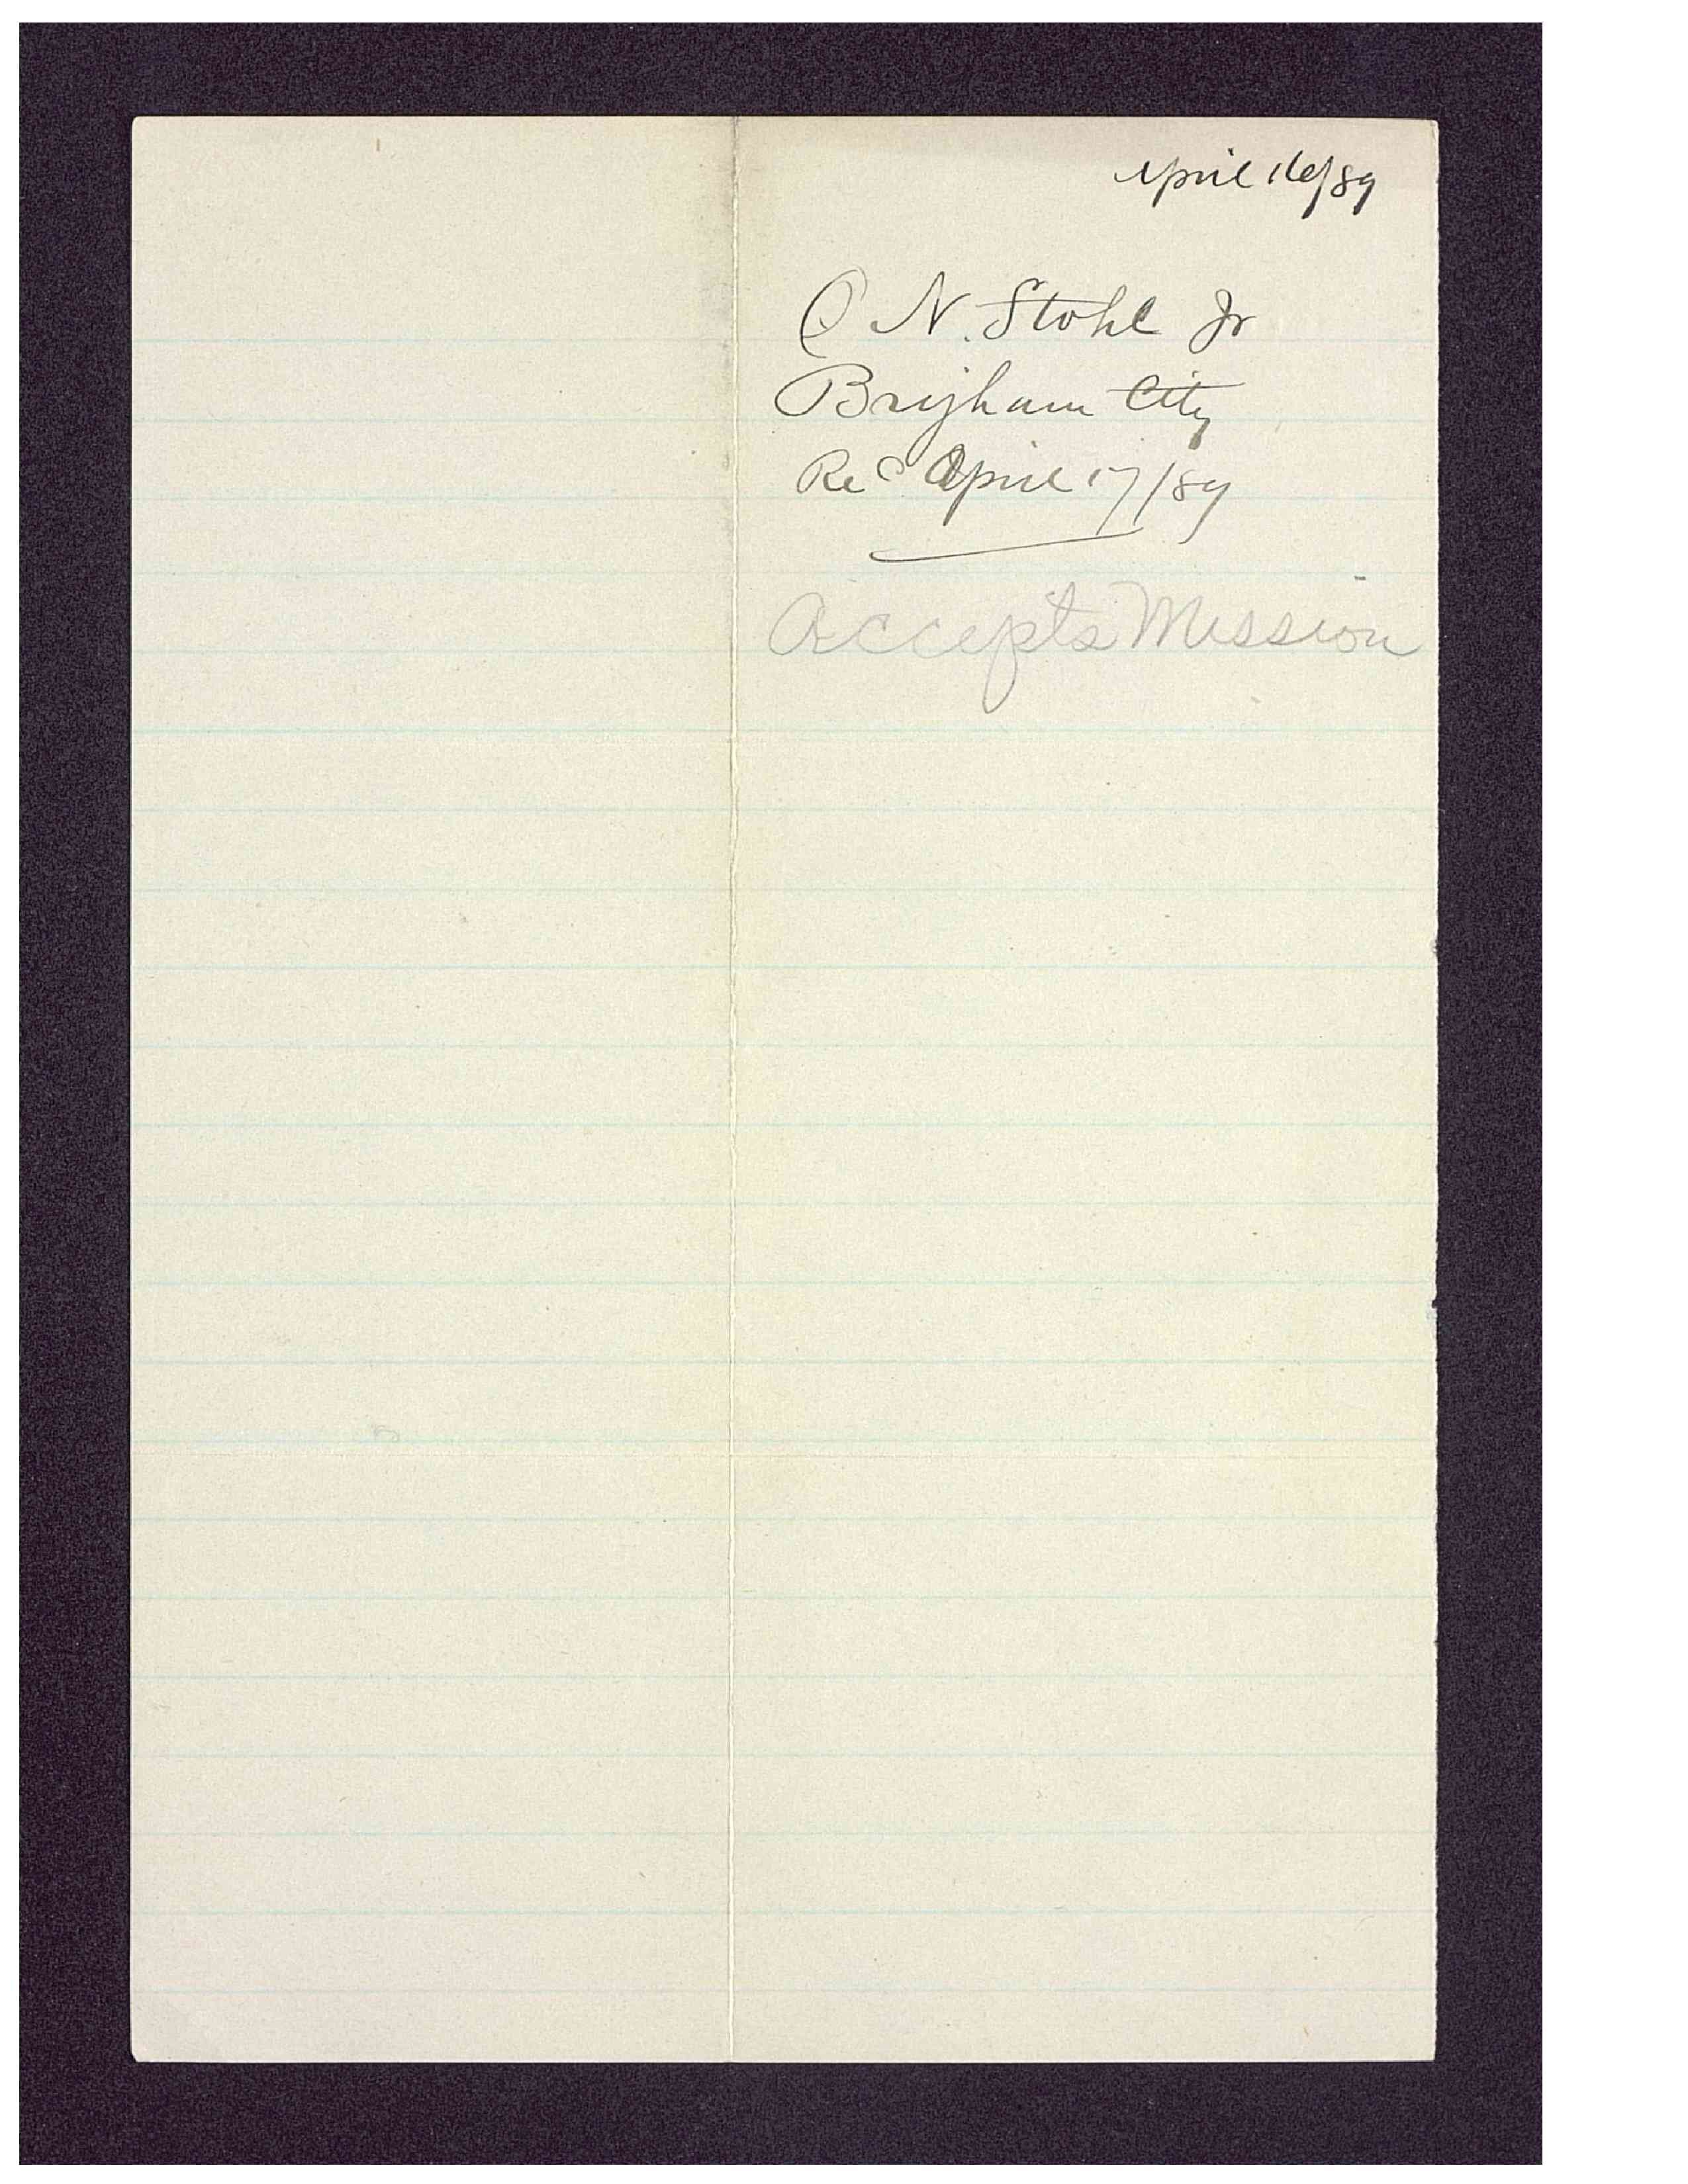 April 16/89
O N. Stohl Jr
Brigham City
Rec April 17/89
Accepts Mission